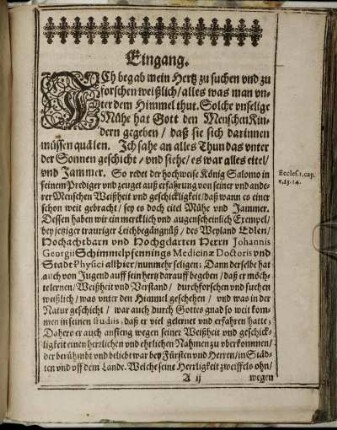 Eingang.
ICh begab mein Hertz zu suchen vnd zu
forschen weißlich/ alles was man vn-
ter dem Himmel thut. Solche vnselige
Mühe hat Gott den MenschenKin-
dern gegeben/ daß sie sich darinnen
müssen quälen. Ich sahe an alles Thun das vnter
der Sonnen geschicht/ vnd siehe/ es war alles eitel/
vnd Jammer. So redet der hochweise König Salomo in
seinem Prediger vnd zeuget auß erfahrung von seiner vnd ande-
rer Menschen Weißheit vnd geschickligkeit/ daß wann es einer
schon weit gebracht/ sey es doch eitel Mühe vnd Jammer.
Dessen haben wir ein mercklich vnd augenscheinlich Exempel/
bey jetziger trauriger Leichbegängnüß/ des Weyland Edlen/
Hochachtbarn vnd Hochgelarten Herrn Johannis
Georgii Schimmelpfennings Medicinæ Doctoris vnd
Stadt Physici allhier/ nunmehr seligen. Dann derselbe hat
auch von Jugend auff sein hertz darauff begeben/ daß er möch-
te lernen/ Weißheit vnd Verstand/ durchforschen vnd suchen
weißlich/ was vnter den Himmel geschehen/ vnd was in der
Natur geschicht/ war auch durch Gottes gnad so weit kom-
men in seinen studiis, daß er viel gelernet vnd erfahren hatte.
Dahero er auch anfieng wegen seiner Weißheit vnd geschick-
ligkeit einen herrlichen vnd ehrlichen Nahmen zu vberkommen/
der berühmbt vnd beliebt war bey Fürsten vnd Herren/ in Städ-
ten vnd off dem Lande. Welche seine Herrligkeit zweiffels ohn/
A ij wegen
Eccles. 1. cap.
v. 13. 14.